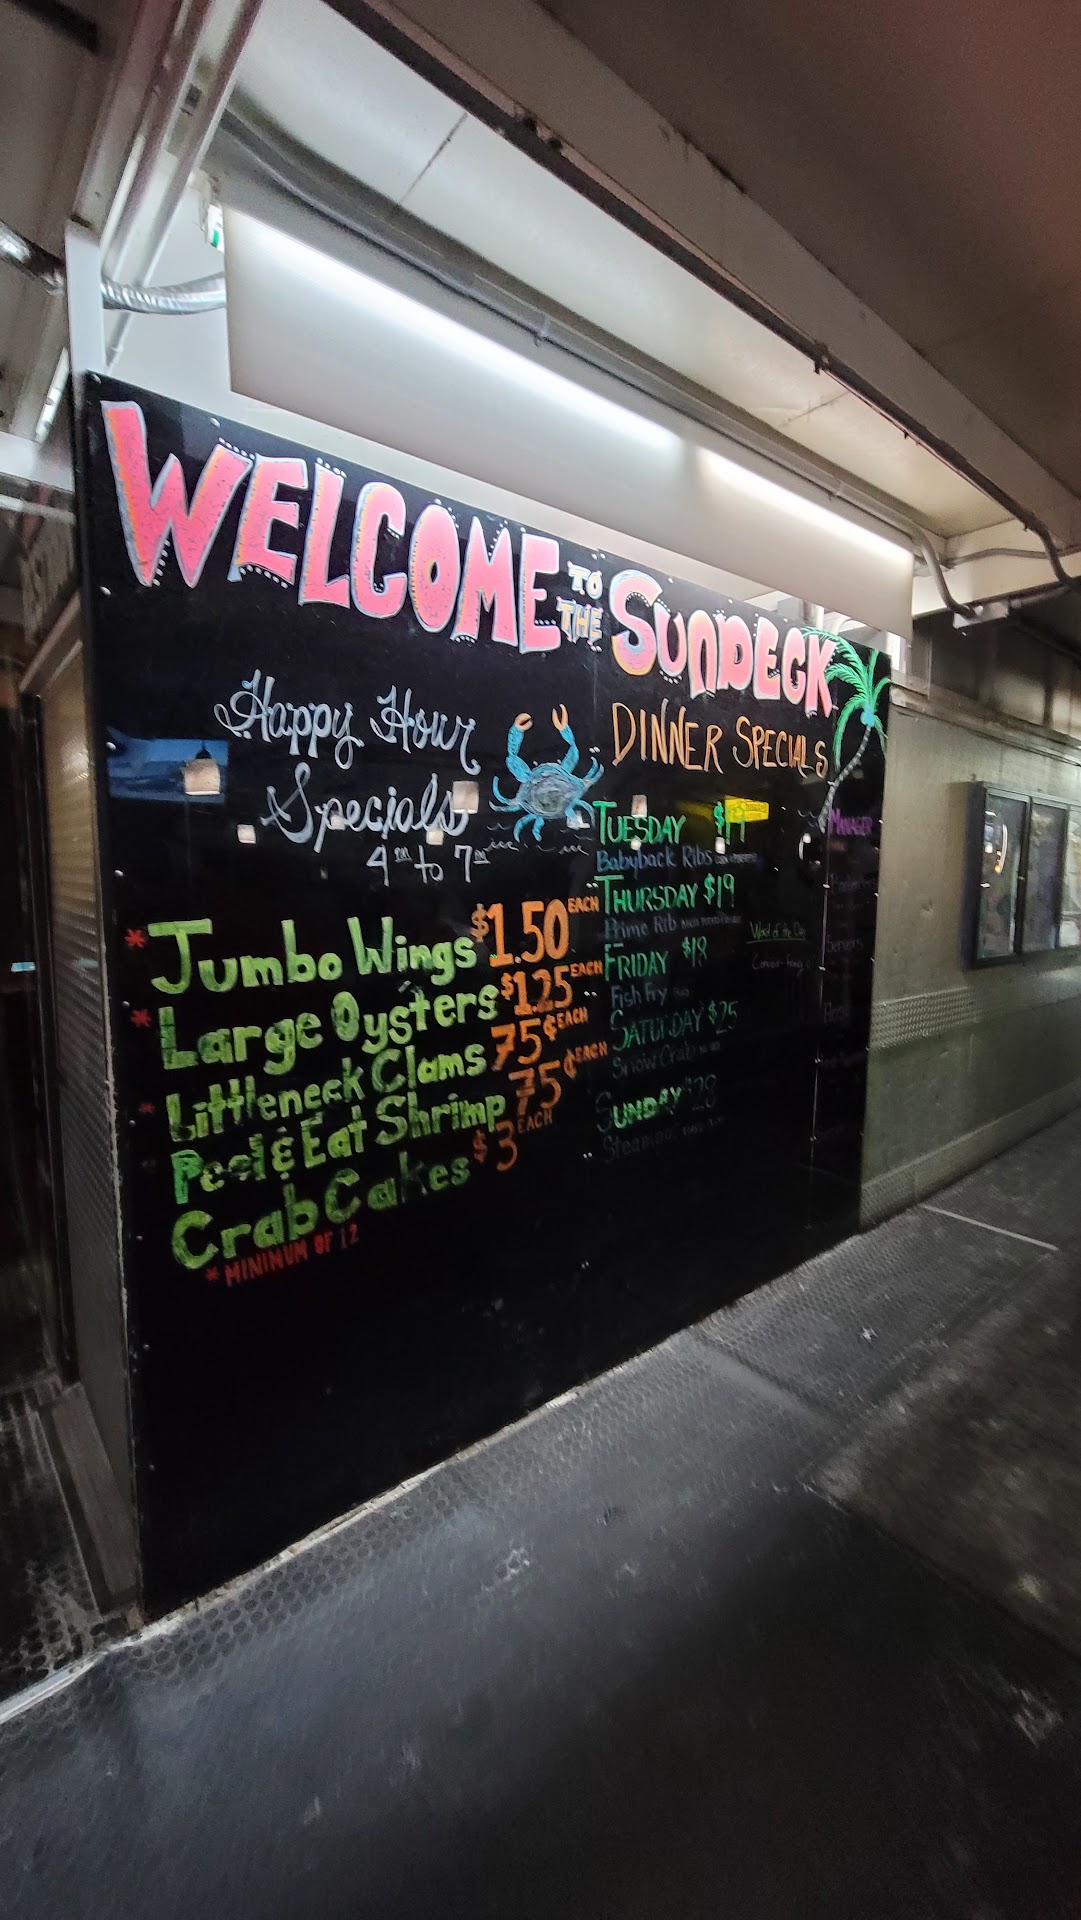 WELCOME TO THE SUNDECK
Happy Hour
Specials
4PM to 7PM
* Jumbo Wings $1.50 EACH
* Large Oysters $1.25 EACH
* Littleneck Clams 75¢ EACH
Peel & Eat Shrimp 75¢ EACH
Crab Cakes $3 EACH
* MINIMUM OF 12
DINNER SPECIALS
TUESDAY $19
Babyback Ribs
THURSDAY $19
Prime Rib
FRIDAY $18
Fish Fry
SATURDAY $25
Snow Crab
SUNDAY $28
Steampot
Word of the Day
MANAGER
Servers